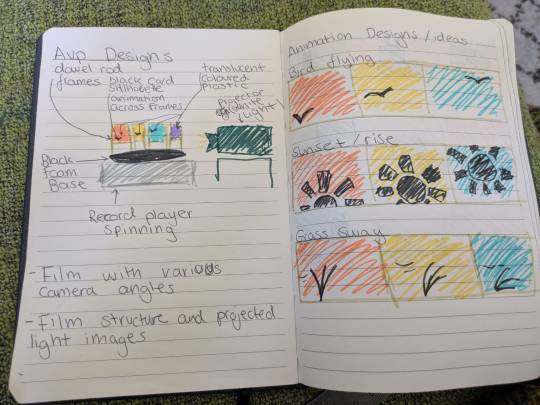 Avp Designs
dowel rod
frames
black card
silhouete
animation
across frames
translucent
coloured
plastic
projector
white
light
Black
foam
Base
Record player
spinning
- Film with various
camera angles
- Film structure and projected
light images
Animation Designs / ideas
Bird flying
Sunset / rise
Grass Sway